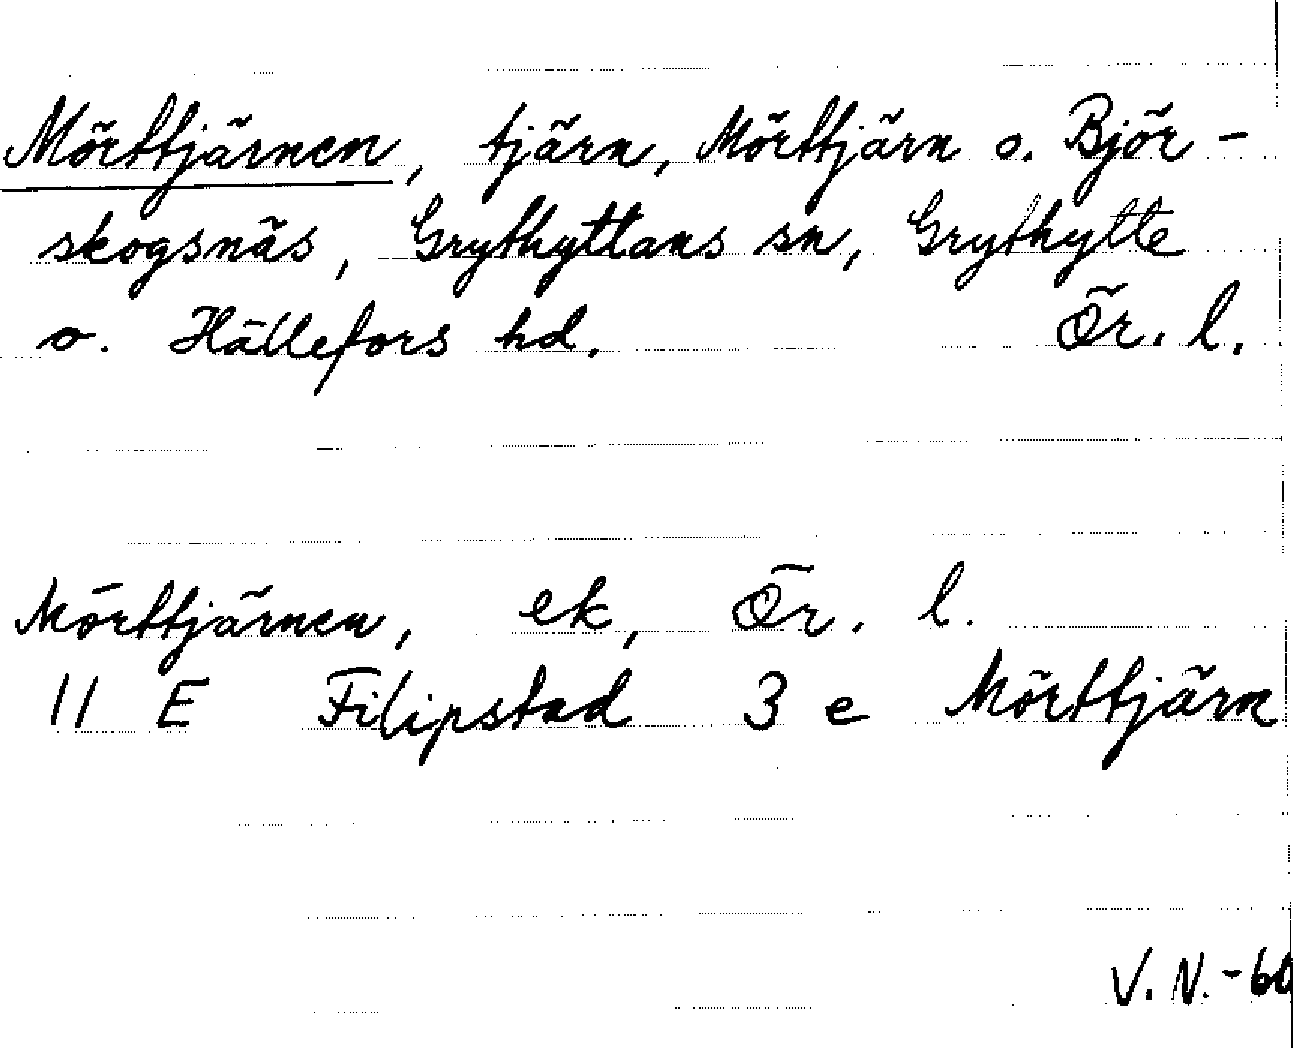 Mörttjärnen, tjärn, Mörttjärn o. Björ-
skogsnäs, Grythyttans sn, Grythytte
o. Hällefors hd. Ör. l.
Mörttjärnen, ek, Ör. l.
11 E Filipstad 3 e Mörttjärn
V. N. -60